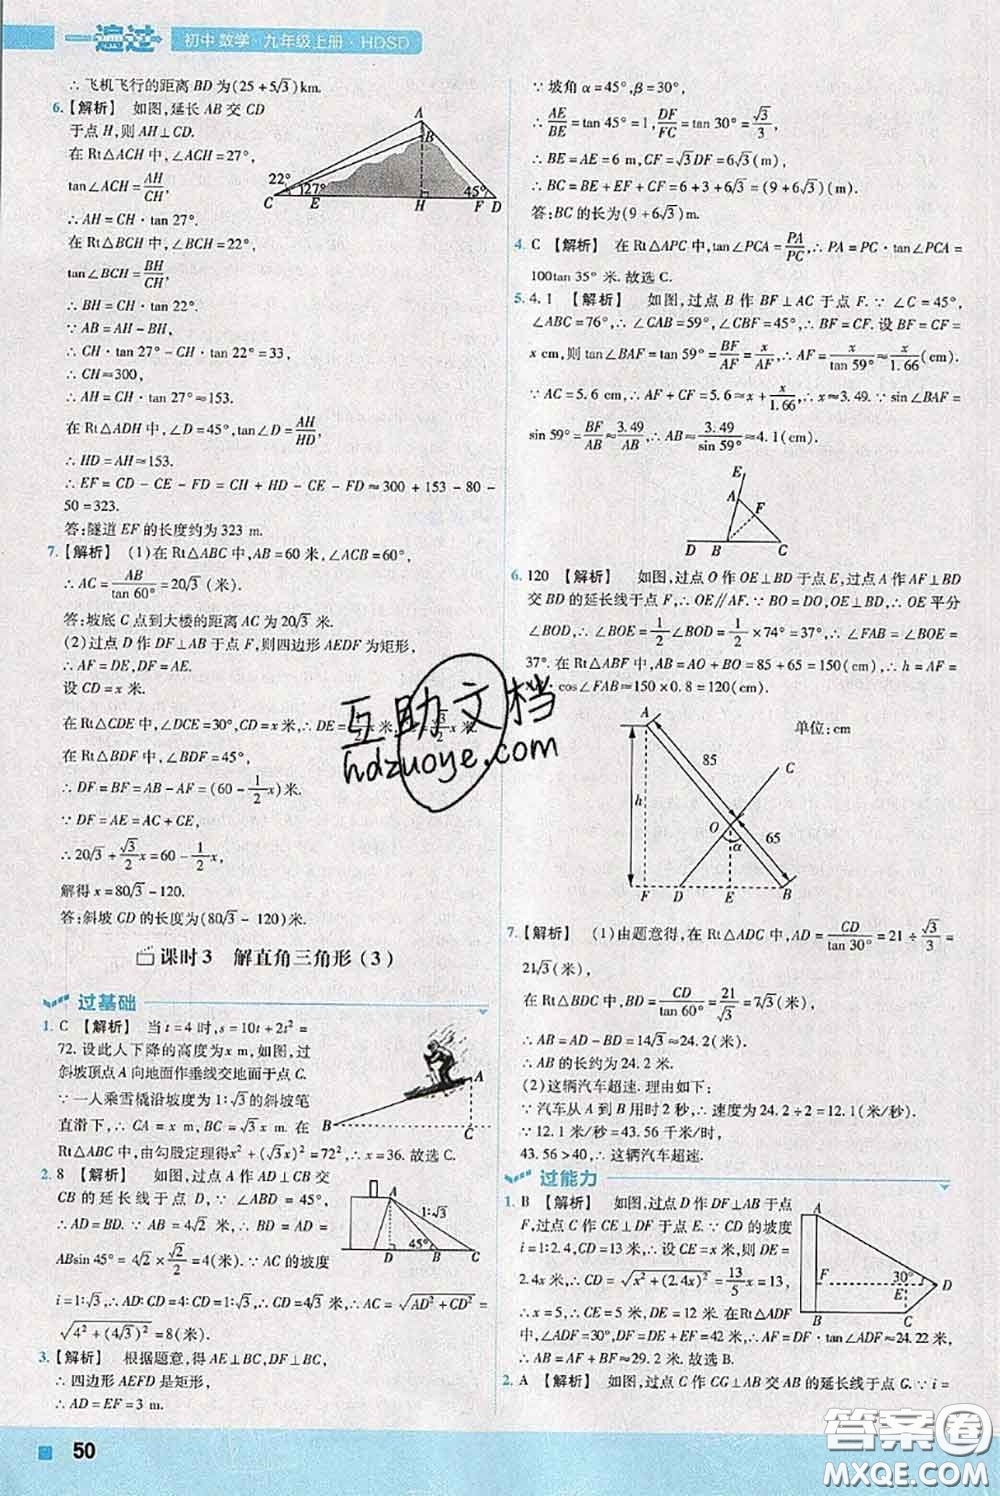 一遍过 初中数学·九年级上册·HDSD
∴ 飞机飞行的距离 BD 为(25+5√3)km.
6.【解析】 如图,延长 AB 交 CD
于点 H,则 AH⊥CD.
在 Rt△ACH 中,∠ACH=27°,
tan∠ACH=AH/CH,
∴ AH=CH·tan 27°.
在 Rt△BCH 中,∠BCH=22°,
tan∠BCH=BH/CH,
∴ BH=CH·tan 22°.
∵ AB=AH-BH,
∴ CH·tan 27°-CH·tan 22°=33,
∴ CH≈300,
∴ AH=CH·tan 27°≈153.
在 Rt△ADH 中,∠D=45°,tan∠D=AH/HD,
∴ HD=AH≈153.
∴ EF=CD-CE-FD=CH+HD-CE-FD≈300+153-80-
50=323.
答:隧道 EF 的长度约为 323 m.
A
B
22°
27°
45°
C E H F D
7.【解析】 (1)在 Rt△ABC 中,AB=60 米,∠ACB=60°,
∴ AC=AB/tan 60°=20√3(米).
答:坡底 C 点到大楼的距离 AC 为 20√3 米.
(2)过点 D 作 DF⊥AB 于点 F,则四边形 AEDF 为矩形,
∴ AF=DE,DF=AE.
设 CD=x 米.
在 Rt△CDE 中,∠DCE=30°,CD=x 米,∴ DE=1/2x 米,CE=√3/2x 米.
在 Rt△BDF 中,∠BDF=45°,
∴ DF=BF=AB-AF=(60-1/2x)米.
∵ DF=AE=AC+CE,
∴ 20√3+√3/2x=60-1/2x,
解得 x=80√3-120.
答:斜坡 CD 的长度为(80√3-120)米.
课时3 解直角三角形(3)
过基础
1. C 【解析】 当 t=4 时,s=10t+2t²=
72.设此人下降的高度为 x m,如图,过
斜坡顶点 A 向地面作垂线交地面于点 C.
∵ 一人乘雪橇沿坡度为 1∶√3的斜坡笔
直滑下,∴ CA=x m,BC=√3x m. 在
Rt△ABC 中,由勾股定理得 x²+(√3x)²=72²,∴ x=36. 故选 C.
A
B
C
2. 8 【解析】 如图,过点 A 作 AD⊥CB 交
CB 的延长线于点 D,∵ ∠ABD=45°,
∴ AD=BD. ∵ AB=4√2 米,∴ AD=
ABsin 45°=4√2×√2/2=4(米). ∵ AC 坡度
i=1∶√3,∴ AD∶CD=4∶CD=1∶√3,∴ CD=4√3 米,∴ AC=√AD²+CD²=
√4²+(4√3)²=8(米).
A
1∶√3
45°
D B C
3.【解析】 根据题意,得 AE⊥BC,DF⊥BC.
∴ 四边形 AEFD 是矩形,
∴ AD=EF=3 m.
∵ 坡角 α=45°,β=30°,
∴ AE/BE=tan 45°=1,DF/FC=tan 30°=√3/3,
∴ BE=AE=6 m,CF=√3DF=6√3(m).
∴ BC=BE+EF+CF=6+3+6√3=(9+6√3)(m).
答:BC 的长为(9+6√3)m.
4. C 【解析】 在 Rt△APC 中,tan∠PCA=PA/PC,∴ PA=PC·tan∠PCA=
100tan 35° 米.故选 C.
5. 4.1 【解析】 如图,过点 B 作 BF⊥AC 于点 F. ∵ ∠C=45°,
∠ABC=76°,∴ ∠BAC=59°,∠CBF=45°,∴ BF=CF. 设 BF=CF=
x cm,则 tan∠BAF=tan 59°=BF/AF=x/AF,∴ AF=x/tan 59°≈x/1.66(cm).
∵ AC=5.6 cm,∴ AF+CF=5.6≈x+x/1.66,∴ x≈3.49. ∵ sin∠BAF=
sin 59°=BF/AB≈3.49/AB,∴ AB≈3.49/sin 59°≈4.1(cm).
E
A
F
D B C
6. 120 【解析】 如图,过点 O 作 OE⊥BD 于点 E,过点 A 作 AF⊥BD
交 BD 的延长线于点 F,∴ OE∥AF. ∵ BO=DO,OE⊥BD,∴ OE 平分
∠BOD,∴ ∠BOE=1/2∠BOD=1/2×74°=37°,∴ ∠FAB=∠BOE=
37°. 在 Rt△ABF 中,AB=AO+BO=85+65=150(cm),∴ h=AF=
AB·cos∠FAB≈150×0.8=120(cm).
A
单位:cm
85
C
h
O
α
65
F D E B
7.【解析】 (1)由题意得,在 Rt△ADC 中,AD=CD/tan 30°=21÷√3/3=
21√3(米),
在 Rt△BDC 中,BD=CD/tan 60°=21/√3=7√3(米),
∴ AB=AD-BD=14√3≈24.2(米).
∴ AB 的长约为 24.2 米.
(2)这辆汽车超速.理由如下:
∵ 汽车从 A 到 B 用时 2 秒,∴ 速度为 24.2÷2=12.1(米/秒).
∵ 12.1 米/秒=43.56 千米/时,
43.56>40,∴ 这辆汽车超速.
过能力
1. B 【解析】 如图,过点 D 作 DF⊥AB 于点
F,过点 C 作 CE⊥DF 于点 E. ∵ CD 的坡度
i=1∶2.4,CD=13 米,∴ 设 CE=x 米,则 DE=
2.4x 米,∴ CD=√x²+(2.4x)²=13/5x=13 米,
∴ x=5,∴ CE=5 米,DE=12 米. 在 Rt△ADF
中,∠ADF=30°,DF=DE+EF=12+30=42(米),∴ AF≈24.22 米,
∴ AB=AF+BF≈29.2 米.故选 B.
A
F
30°
E
D
B C
2. A 【解析】 如图,过点 C 作 CG⊥AB 交 AB 的延长线于点 G. ∵ i=
互助文档
hdzuoye.com
50
答案圈
MXQE.COM